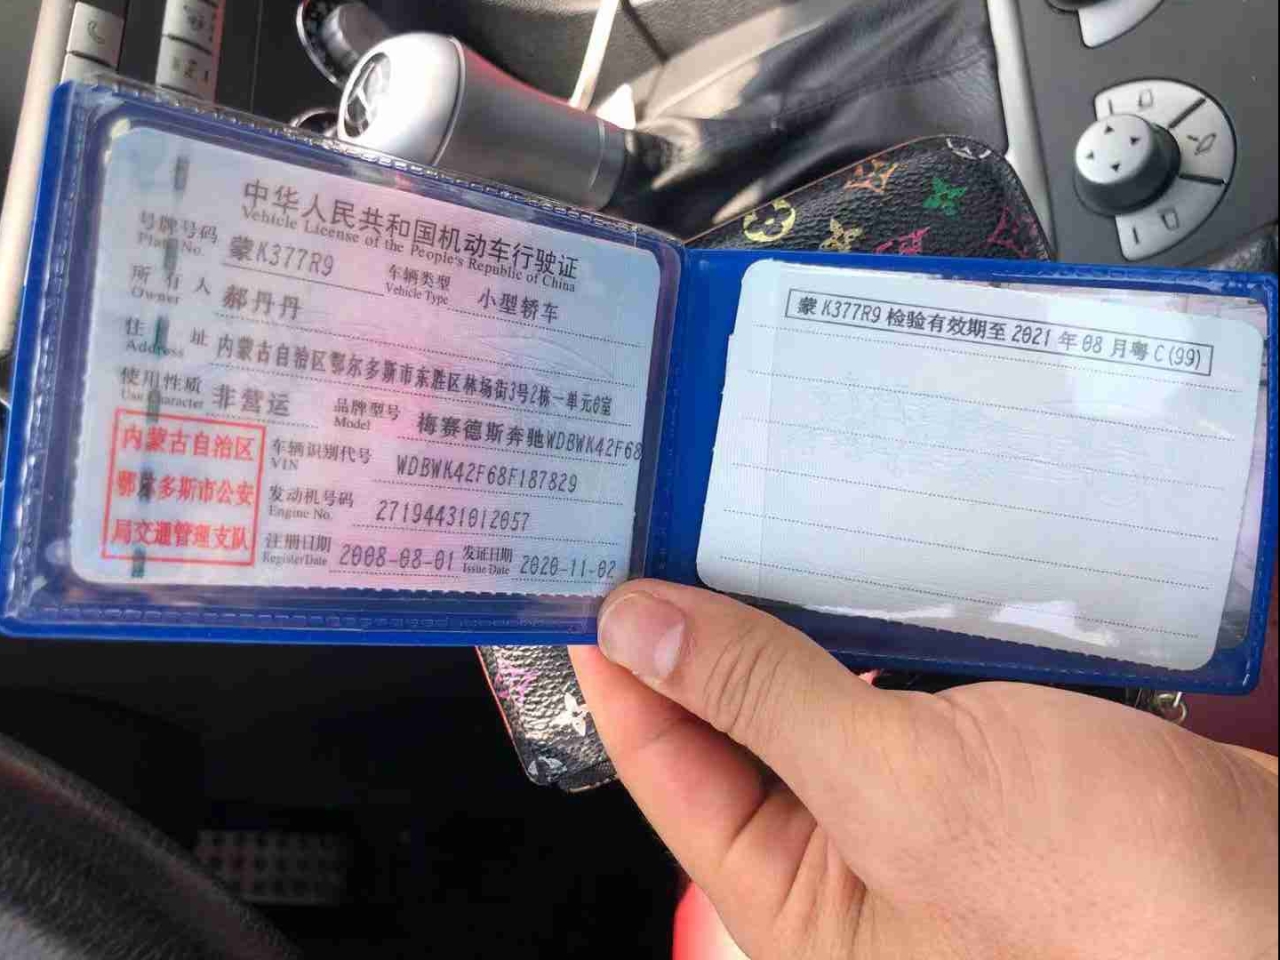 中华人民共和国机动车行驶证
Vehicle License of the People's Republic of China
号牌号码 蒙K377R9 车辆类型 小型轿车
Plate No. Vehicle Type
所有人 郝丹丹
Owner
住址 内蒙古自治区鄂尔多斯市东胜区林场街3号2栋一单元6室
Address
使用性质 非营运 品牌型号 梅赛德斯奔驰WDBWK42F68
Use Character Model
车辆识别代号 WDBWK42F68F187829
VIN
发动机号码 27194431012057
Engine No.
注册日期 2008-08-01 发证日期 2020-11-02
Register Date Issue Date
内蒙古自治区
鄂尔多斯市公安
局交通管理支队
蒙K377R9检验有效期至2021年08月粤C(99)